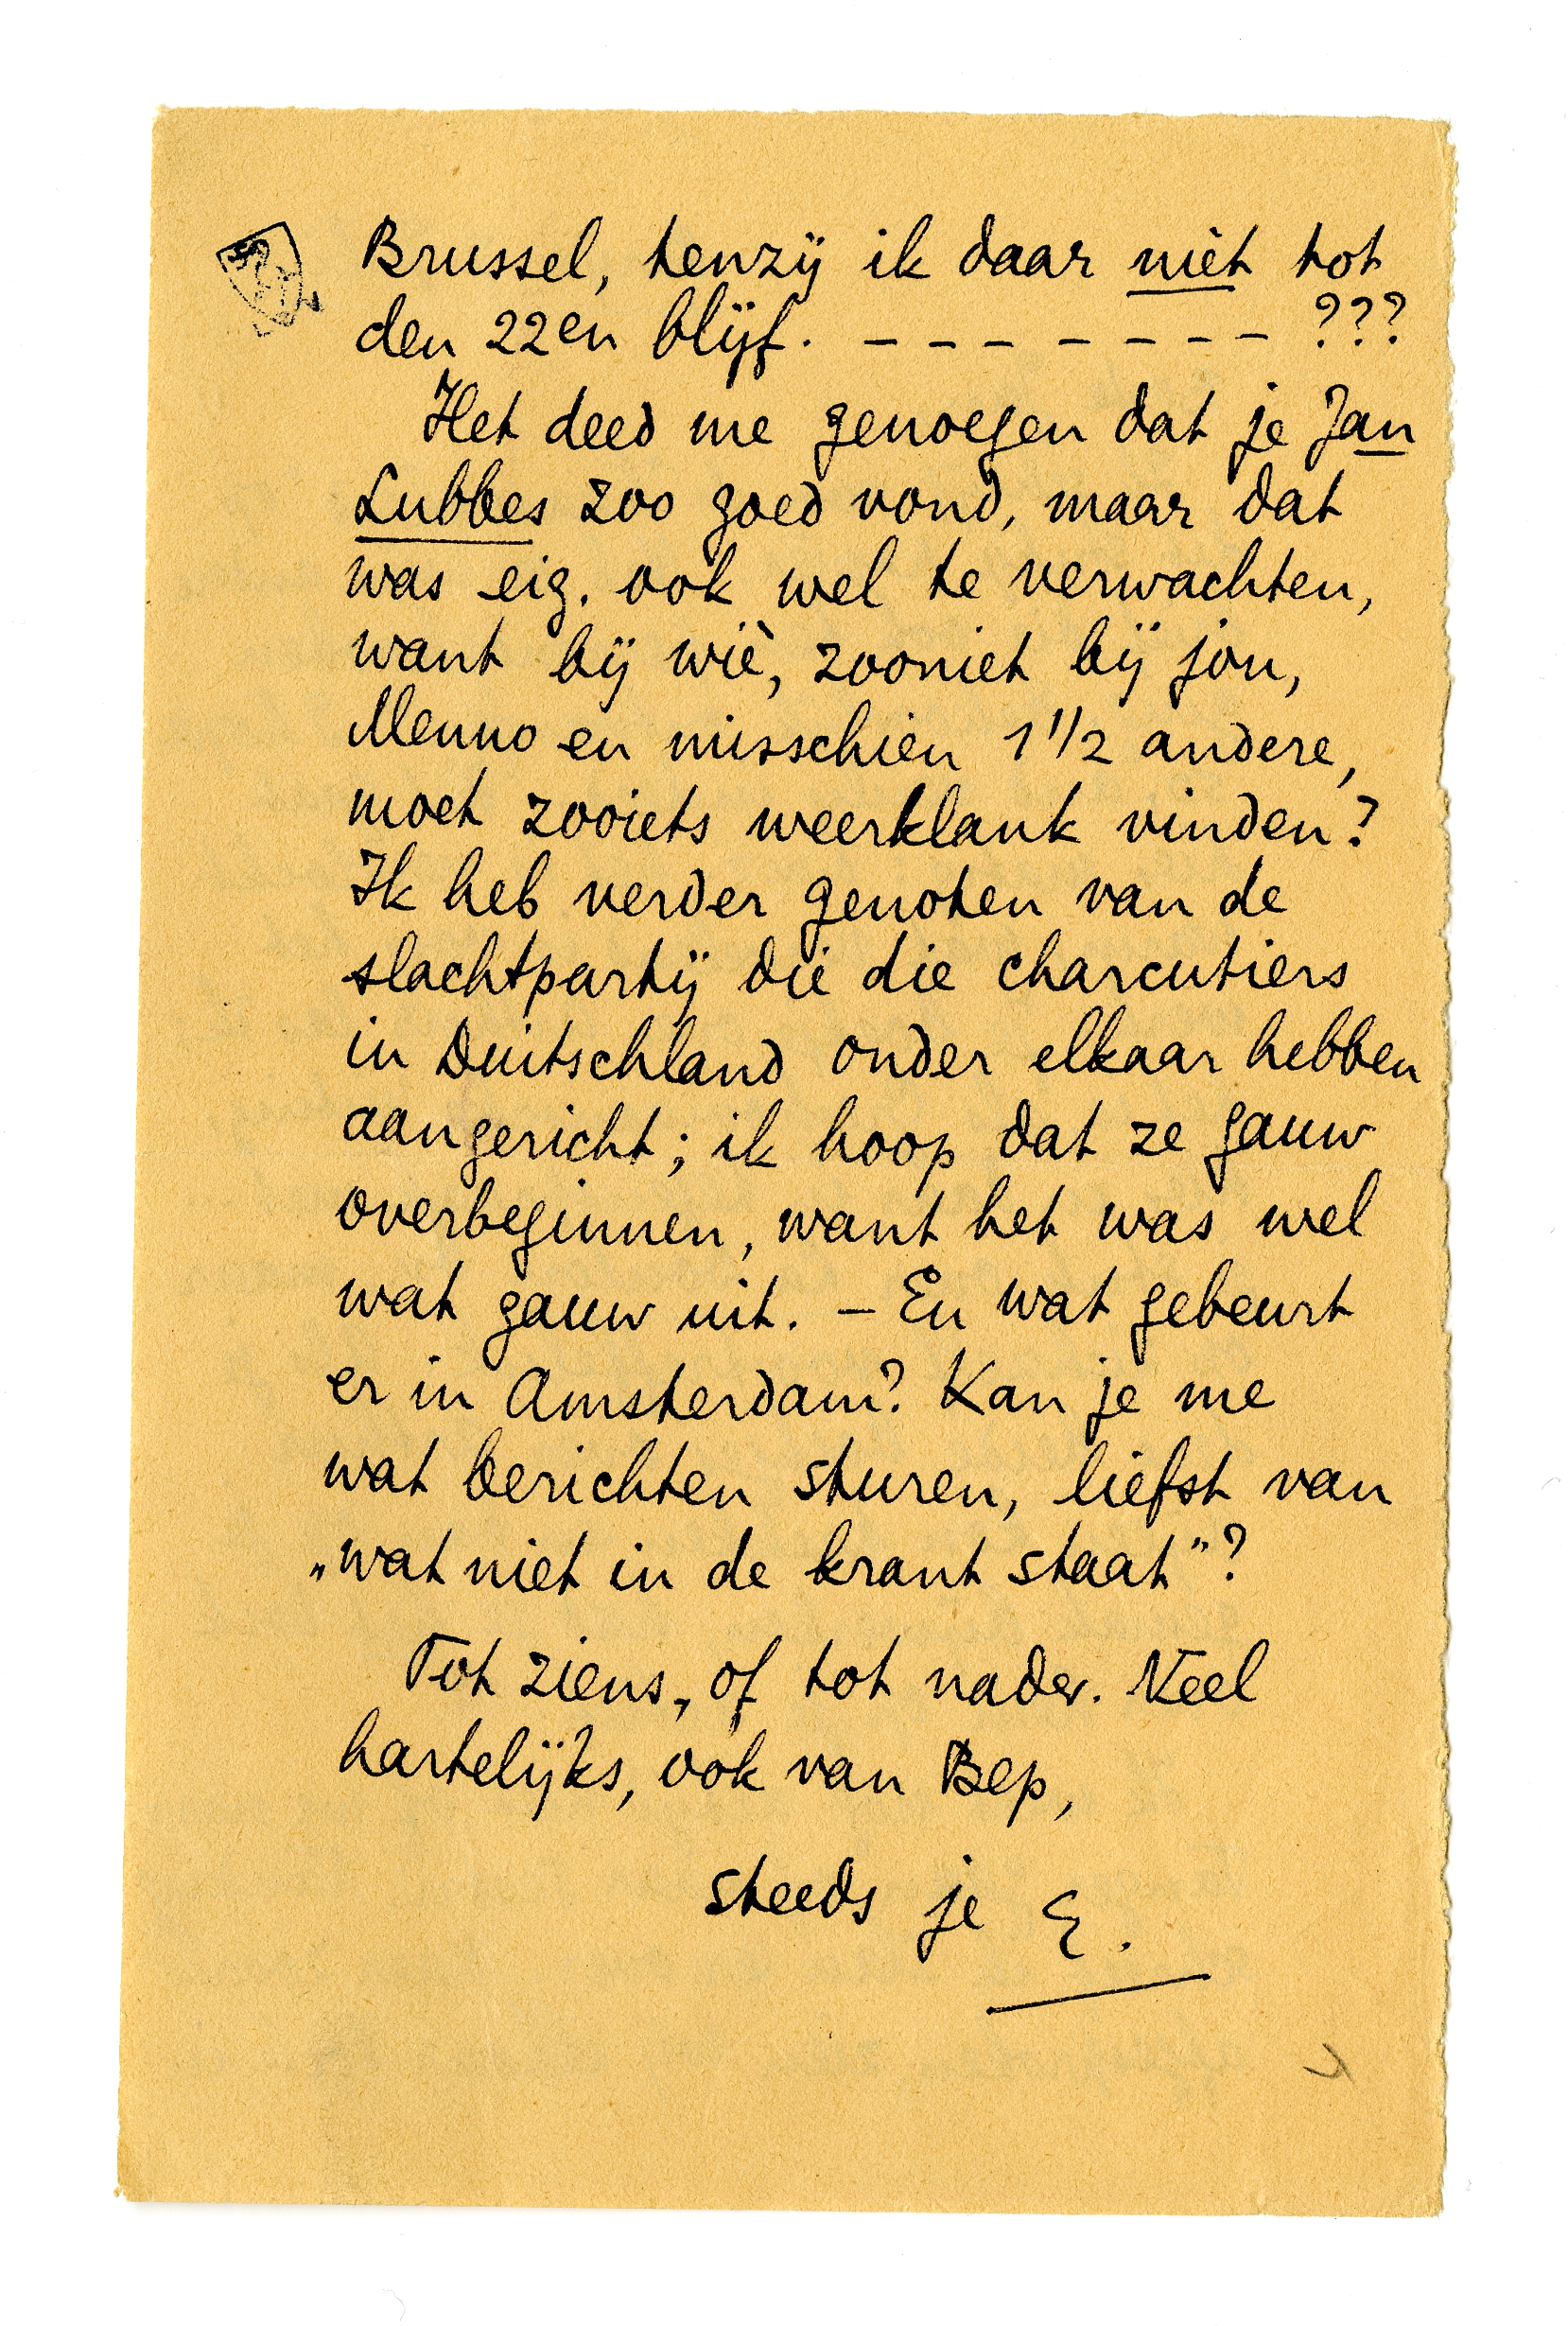 Brussel, tenzij ik daar nièt tot
den 22en blijf. – – – – – – – – ???
Het deed me genoegen dat je Jan
Lubbes zoo goed vond, maar dat
was eig. ook wel te verwachten,
want bij wiè, zooniet bij jou,
Menno en misschien 1 1/2 andere,
moet zooiets weerklank vinden?
Ik heb verder genoten van de
slachtpartij die die charcutiers
in Duitschland onder elkaar hebben
aangericht; ik hoop dat ze gauw
overbeginnen, want het was wel
wat gauw uit. – En wat gebeurt
er in Amsterdam? Kan je me
wat berichten sturen, liefst van
„wat niet in de krant staat"?
Tot ziens, of tot nader. Veel
hartelijks, ook van Bep,
steeds je E.